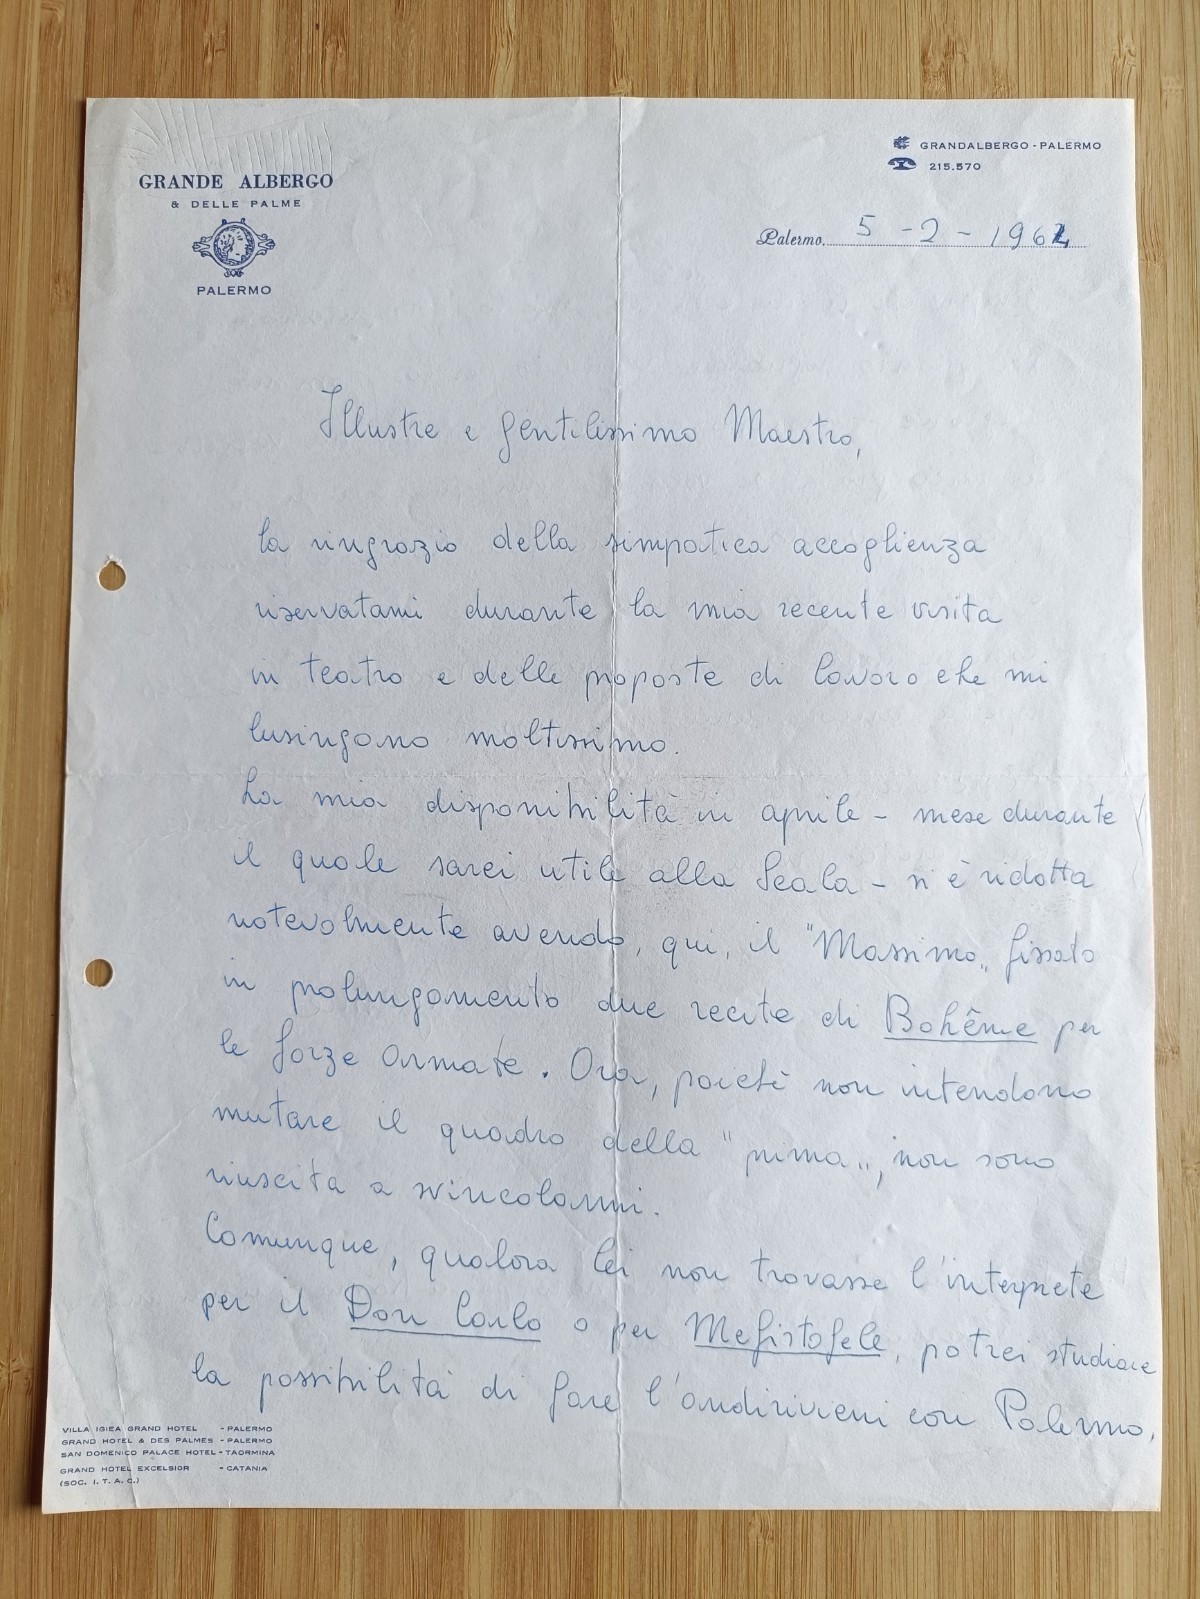 GRANDE ALBERGO
& DELLE PALME
PALERMO
GRANDALBERGO - PALERMO
215.570
Palermo, 5 - 2 - 1962
Illustre e gentilissimo Maestro,
la ringrazio della simpatica accoglienza
riservatami durante la mia recente visita
in teatro e delle proposte di lavoro che mi
lusingano moltissimo.
La mia disponibilità in aprile - mese durante
il quale sarei utile alla Scala - si è ridotta
notevolmente avendo, qui, il "Massimo„ fissato
in prolungamento due recite di Bohême per
le forze armate. Ora, poichè non intendono
mutare il quadro della "prima„, non sono
riuscita a svincolarmi.
Comunque, qualora lei non trovasse l'interprete
per il Don Carlo o per Mefistofele, potrei studiare
la possibilità di fare l'andirivieni con Palermo,
VILLA IGIEA GRAND HOTEL - PALERMO
GRAND HOTEL & DES PALMES - PALERMO
SAN DOMENICO PALACE HOTEL - TAORMINA
GRAND HOTEL EXCELSIOR - CATANIA
(SOC. I. T. A. C.)